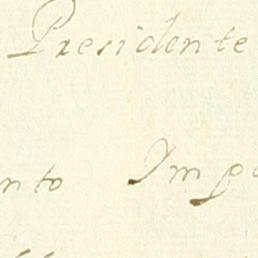 Presidente
nto Impe